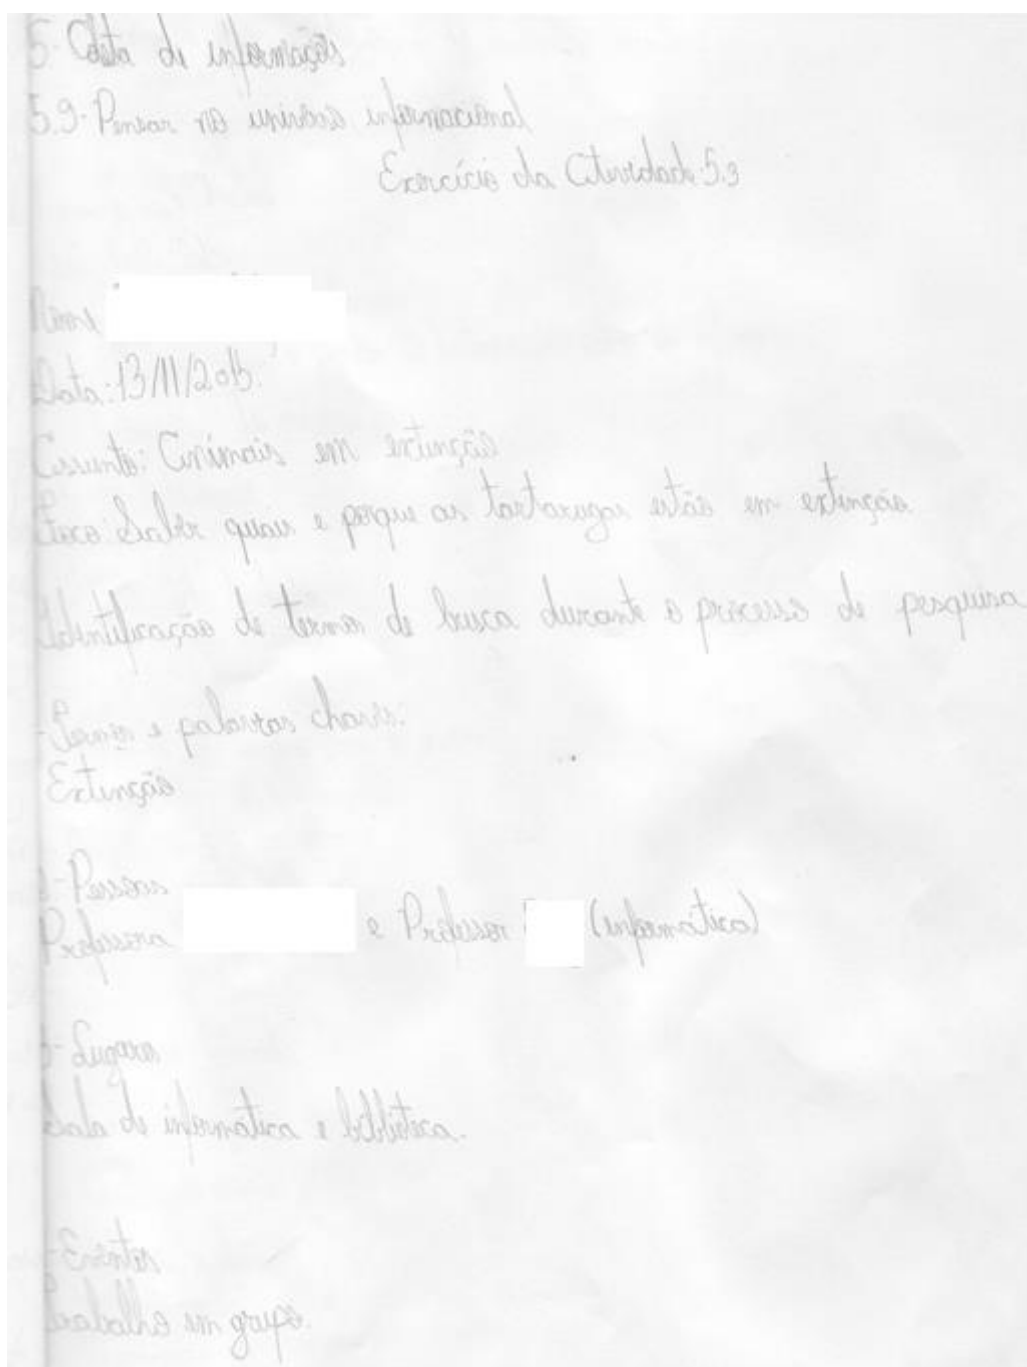 5- Coleta de informações
5.3- Pensar no universo informacional
Exercício da Atividade 5.3
Nome
Data: 13/11/2015.
Assunto: Animais em extinção
Foco Saber quais e porque as tartarugas estão em extinção
Identificação de termos de busca durante o processo de pesquisa
-Temas e palavras chaves:
Extinção
-Pessoas
Professora e Professor (informática)
-Lugares
Sala de informática e biblioteca.
-Eventos
Trabalho em grupo.